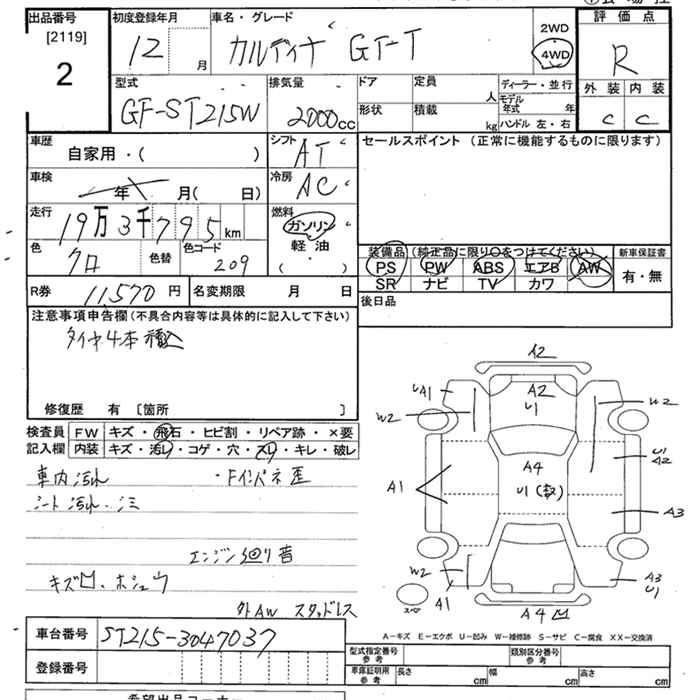 出品番号
[2119]
2
初度登録年月
12 月
車名・グレード
カルディナ GT-T
2WD
4WD
評価点
R
外装 内装
C C
型式
GF-ST215W
排気量
2000cc
ドア
定員
人
形状
積載
kg
ディーラー・並行
モデル年式 年
ハンドル 左・右
車歴
自家用・( )
シフト
AT
セールスポイント (正常に機能するものに限ります)
車検
年 月( 日)
冷房
AC
走行
19万3千795km
燃料
ガソリン
軽油
( )
色
クロ
色替
色コード
209
装備品 (純正品に限り○をつけてください)
PS PW ABS エアB AW
SR ナビ TV カワ
新車保証書
有・無
R券 11570円
名変期限 月 日
後日品
注意事項申告欄(不具合内容等は具体的に記入して下さい)
タイヤ4本積込
修復歴 有 〔箇所 〕
検査員記入欄
FW キズ・飛石・ヒビ割・リペア跡・×要
内装 キズ・汚レ・コゲ・穴・スレ・キレ・破レ
車内汚れ ・Fインパネ歪
シート汚れ・シミ
エンジン廻り音
キズ凹、ホシュウ
外AW スタッドレス
A2
UA1
A2
U1
W2
W2
A4
U1(数)
U1
A2
A1
A3
W2
A1
A3
U1
スペア
A4凹
A-キズ E-エクボ U-凹み W-補修跡 S-サビ C-腐食 XX-交換済
車台番号
ST215-3047037
登録番号
型式指定番号 参考
類別区分番号 参考
車庫証明用 参考
長さ cm
幅 cm
高さ cm
希望出品コーナー